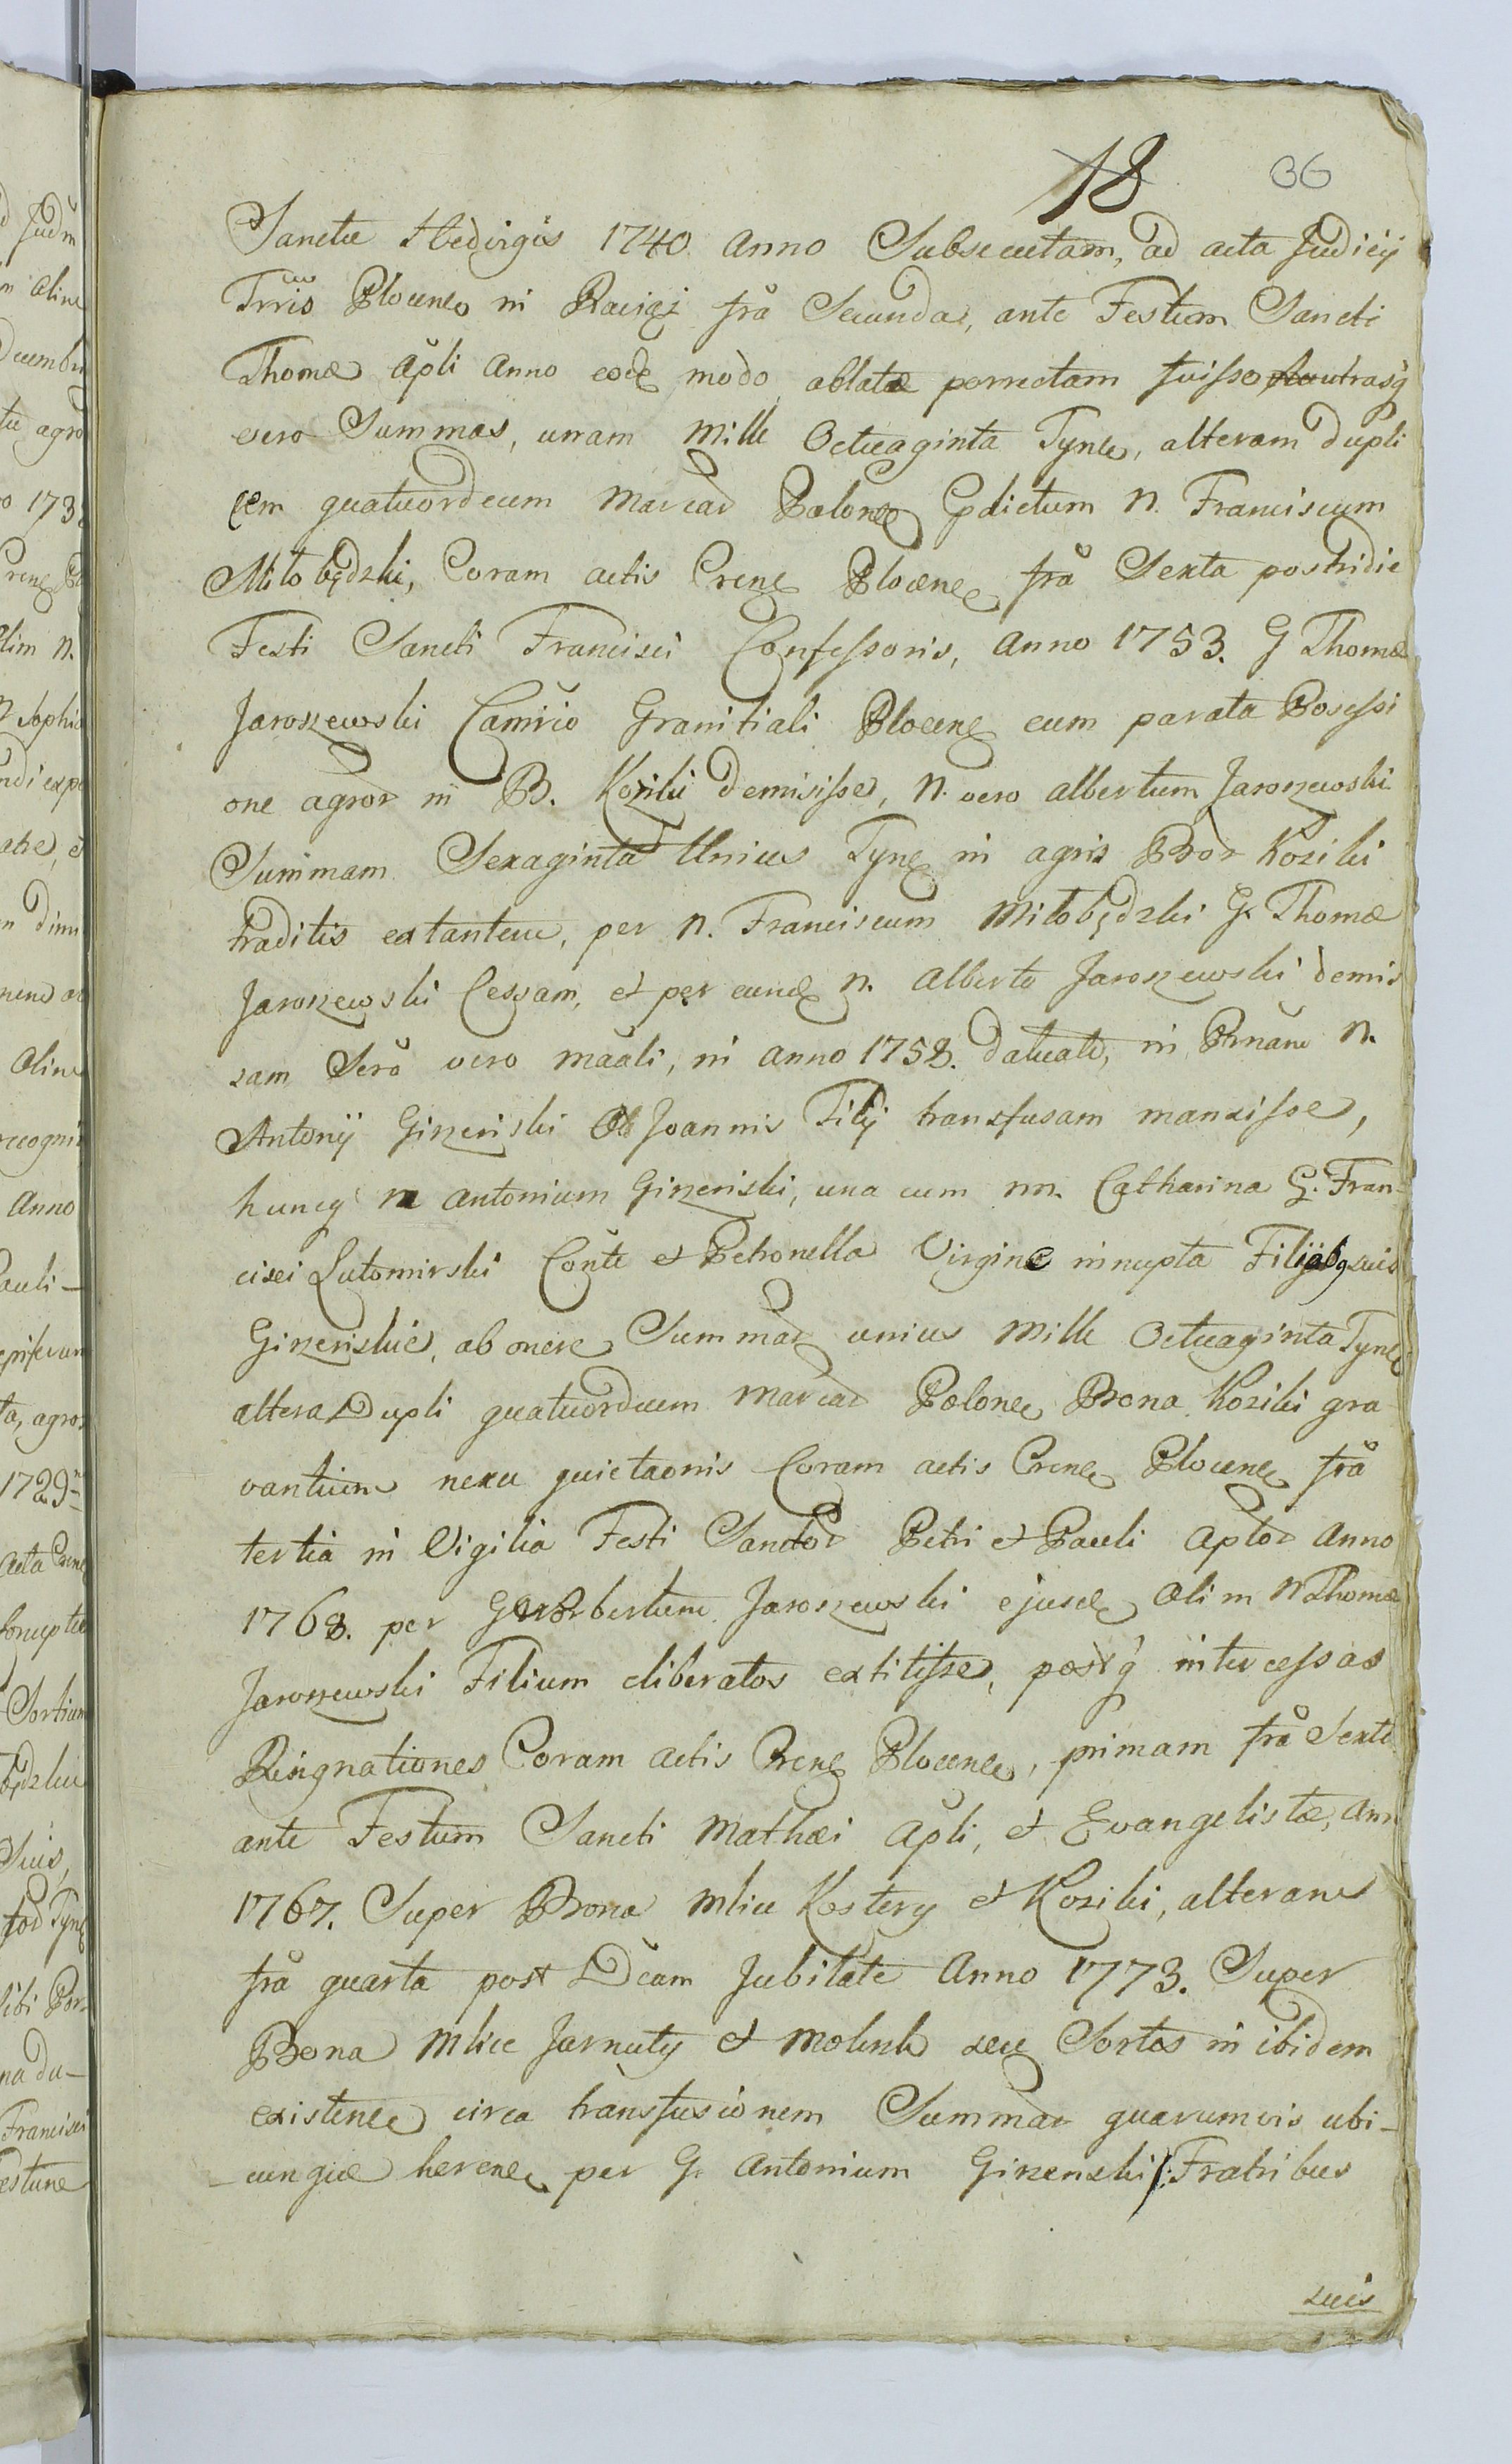 18 36
Sanctæ Hedvigis 1740 anno Subsecutam, ad acta Judicij
Trrio Plocen in Raciąż fra Secunda, ante Festum Sancti
Thomæ Apli Anno eodē modo oblatæ porrectam fuisse utrasq
vero Summas, unam Mille Octuaginta Tynf, alteram dupli
cem quatuordecim Marcar Polone pdictum N. Franciscum
Miłobędzki, Coram actis Cren Plocen fra Sexta postridie
Festi Sancti Francisci Confessoris, Anno 1753. G Thomæ
Jaroszewski Camrio Granitiali Plocen cum parata Possessi
one agror in B. Koziki demisisse, N. vero Albertum Jaroszewski
Summam Sexaginta Unius Tynf in agris Bor Koziki
traditis extantem, per N. Franciscum Miłobędzki G. Thomæ
Jaroszewski Cessam, et per eund N. Alberto Jaroszewski demis
sam Sero vero maali, in anno 1758. datuali, in Prnam N.
Antonij Giżeński Joannis Filij transfusam mansisse,
huncq N Antonium Giżeński, una cum nn. Catharina G. Fran-
cisci Lutomirski Conte et Petronella Virgine innupta Filijabq suis
Giżeńskie, ab onere Summar unius Mille Octuaginta Tynf
altera Dupli quatuordecim Marcar Polone Bona Koziki gra
vantium nexu quietaonis Coram actis Cren Plocen fra
tertia in Vigilia Festi Sanctor Petri et Pauli Aplor Anno
1768. per Norbertum Jaroszewski ejusd Olim N Thomæ
Jaroszewski Filium eliberatos extitisse, postq intercessas
Resignationes Coram actis Cren Plocen, primam fra Sexta
ante Festum Sancti Mathæi Apli, et Evangelistæ, Ann
1767. Super Bona Mlice Kostery et Koziki, alteram
fra quarta post Dcam Jubilate Anno 1773. Super
Bona Mlice Jarnuty et Molenk seu Sortes in ibidem
existen circa transfusionem Summar quarumvis ubi-
-cunque heren per G. Antonium Giżenski /: Fratribus
suis